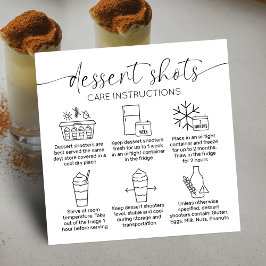 dessert shots
CARE INSTRUCTIONS
1
WEEK
Dessert shooters are
best served the same
day; store covered in a
cool dry place
Keep dessert shooters
fresh for up to 1 week
in an airtight container
in the fridge
Place in an airtight
container and freeze
for up to 2 months.
Thaw in the fridge
for 2 hours
Serve at room
temperature. Take
out of the fridge 1
hour before serving
Keep dessert shooters
level, stable and cool
during storage and
transportation
Unless otherwise
specified, dessert
shooters contain: Gluten,
Eggs, Milk, Nuts, Peanuts